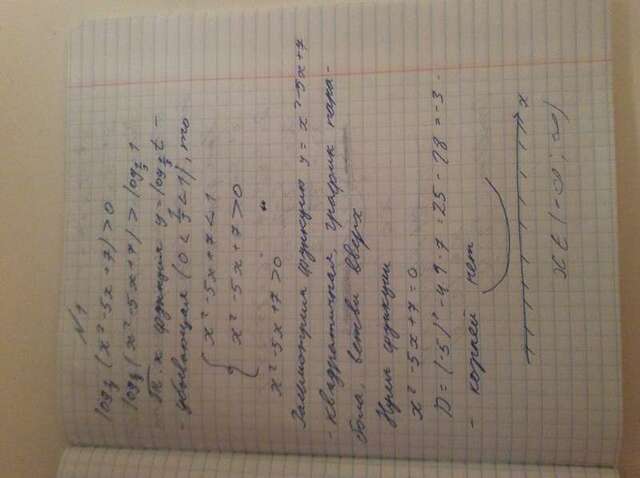 N1
log½ (x² - 5x + 7) > 0
log½ (x² - 5x + 7) > log½ 1
Т.к функция y = log½ t -
- убывающая (0 < ½ < 1), то
{ x² - 5x + 7 < 1
x² - 5x + 7 > 0
x² - 5x + 7 > 0
Рассмотрим функцию y = x² - 5x + 7
- квадратичная, график пара-
бола, ветви вверх
Нули функции
x² - 5x + 7 = 0
D = (-5)² - 4 · 7 = 25 - 28 = -3 -
- корней нет
x
x ∈ (-∞; ∞)